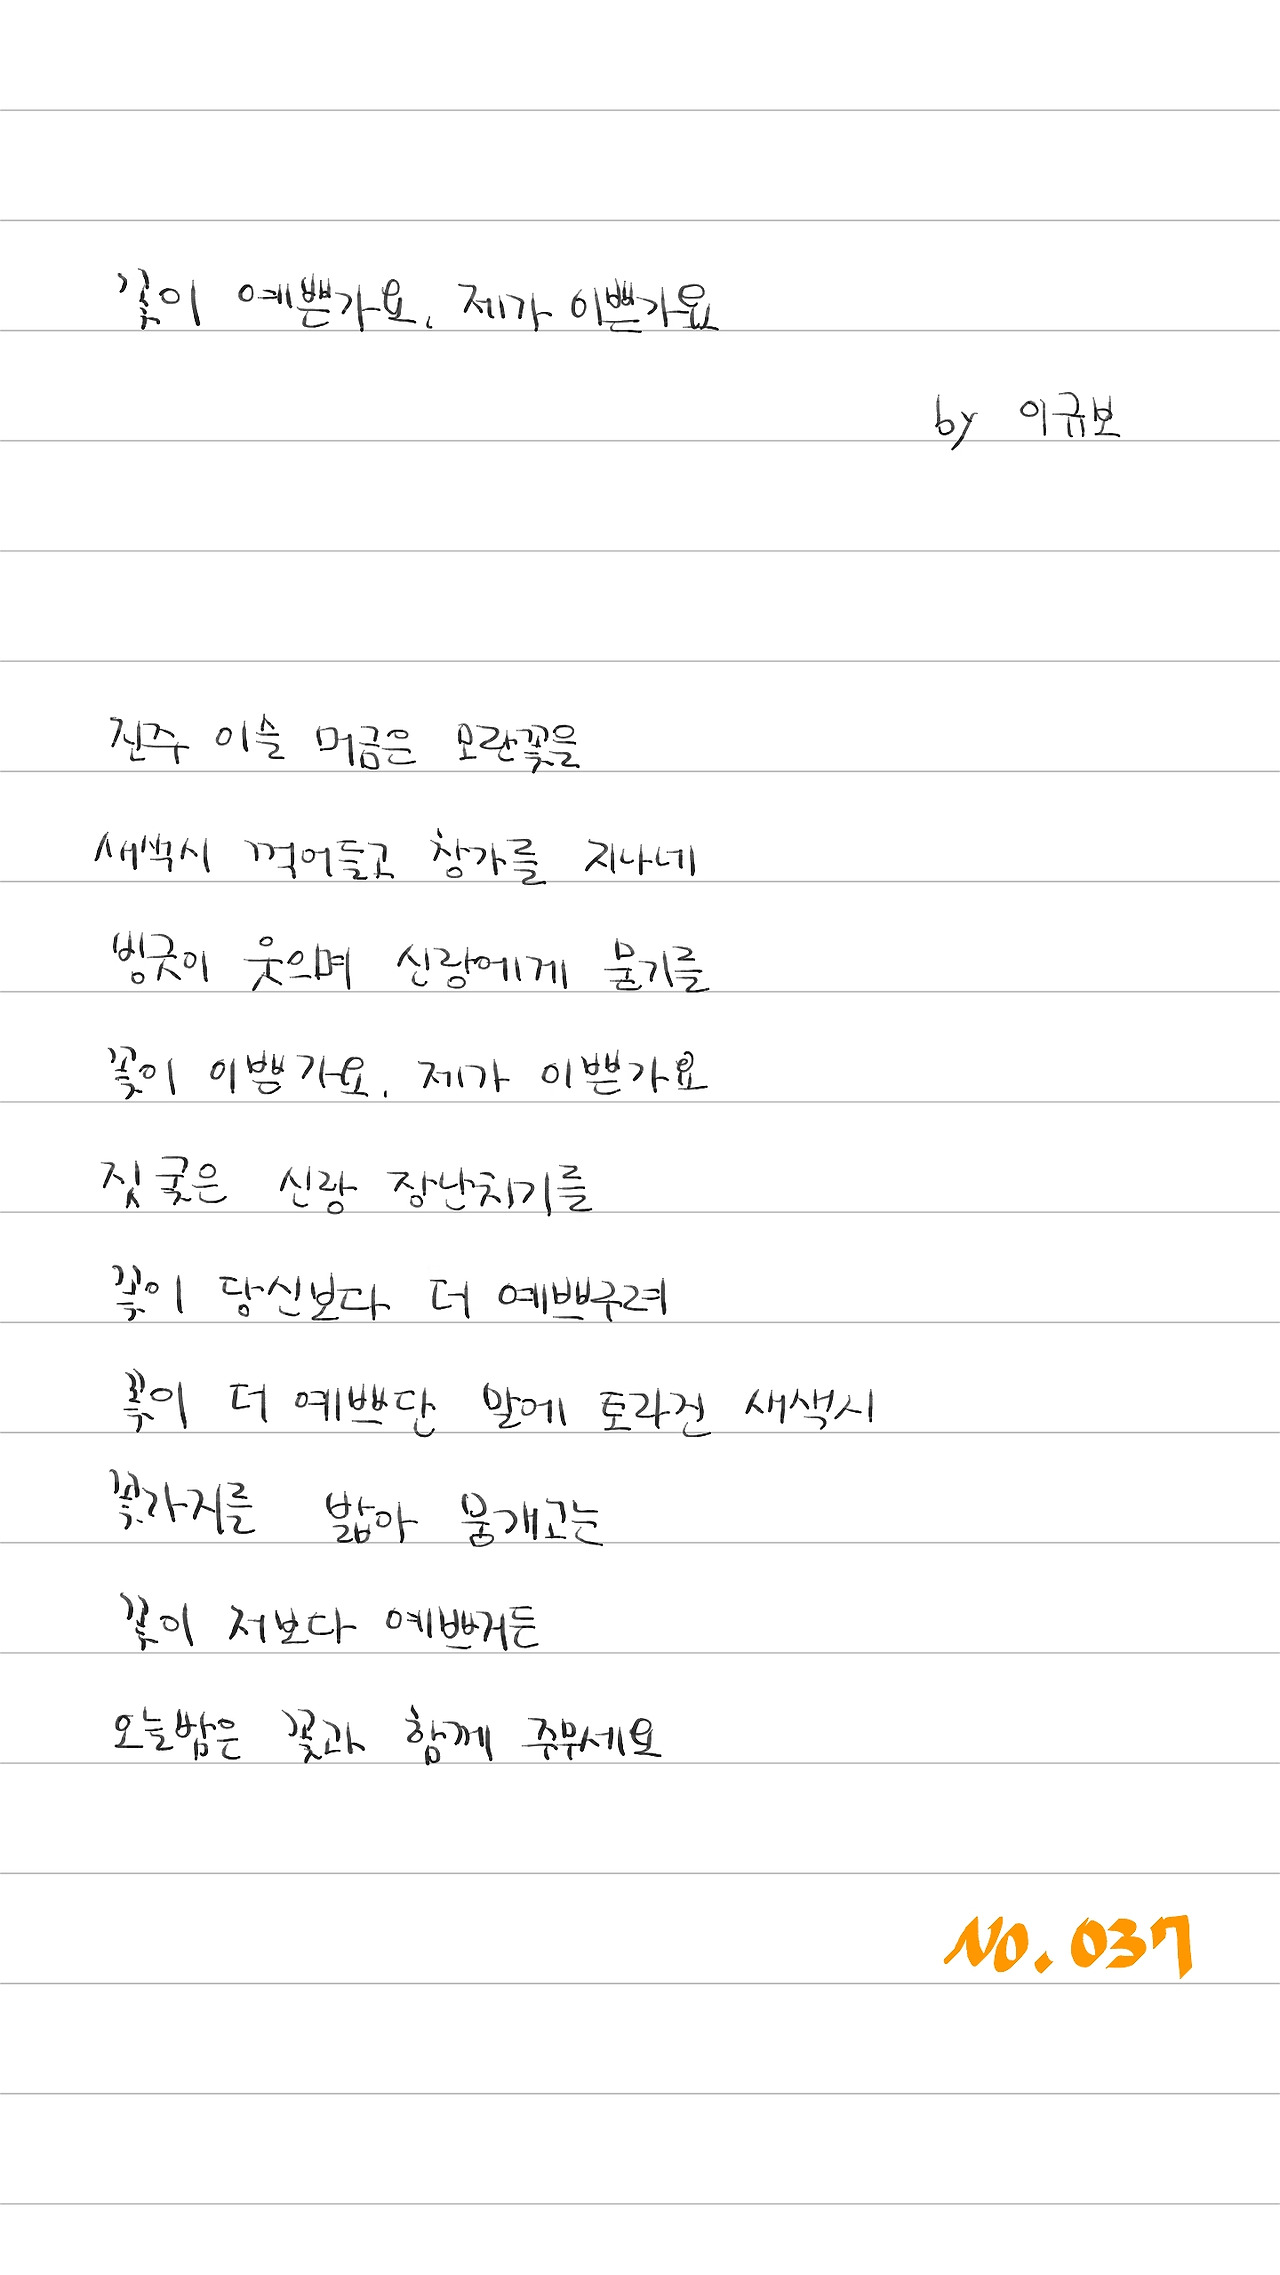 꽃이 예쁜가요, 제가 이쁜가요
by 이규보
진주 이슬 머금은 모란꽃을
새색시 꺽어들고 창가를 지나네
빙긋이 웃으며 신랑에게 묻기를
꽃이 이쁨가요, 제가 이쁜가요
짓궂은 신랑 장난치기를
꽃이 당신보다 더 예쁘구려
꽃이 더 예쁘단 말에 토라진 새색시
꽃가지를 밟아 뭉개고는
꽃이 저보다 예쁘거든
오늘밤은 꽃과 함께 주무세요
NO. 037